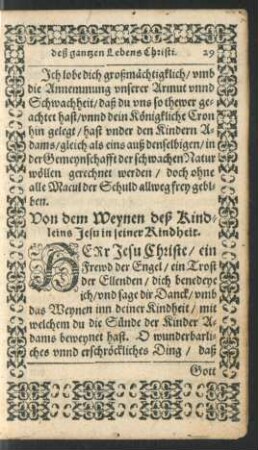 deß gantzen Lebens Christi. 29
Ich lobe dich großmächtigklich / vmb
die Annemmung vnserer Armut vnnd
Schwachheit / daß du vns so thewer ge-
achtet hast / vnnd dein Königkliche Cron
hin gelegt / hast vnder den Kindern A-
dams / gleich als eins auß denselbigen / in
der Gemeynschafft der schwachen Natur
wöllen gerechnet werden / doch ohne
alle Macul der Schuld allweg frey gebli-
ben.
Von dem Weynen deß Kind-
leins Jesu in seiner Kindheit.
HERr Jesu Christe / ein
Frewd der Engel / ein Trost
der Ellenden / dich benedeye
ich / vnd sage dir Danck / vmb
das Weynen inn deiner Kindheit / mit
welchem du die Sünde der Kinder A-
dams beweynet hast. O wunderbarli-
ches vnnd erschröckliches Ding / daß
Gott